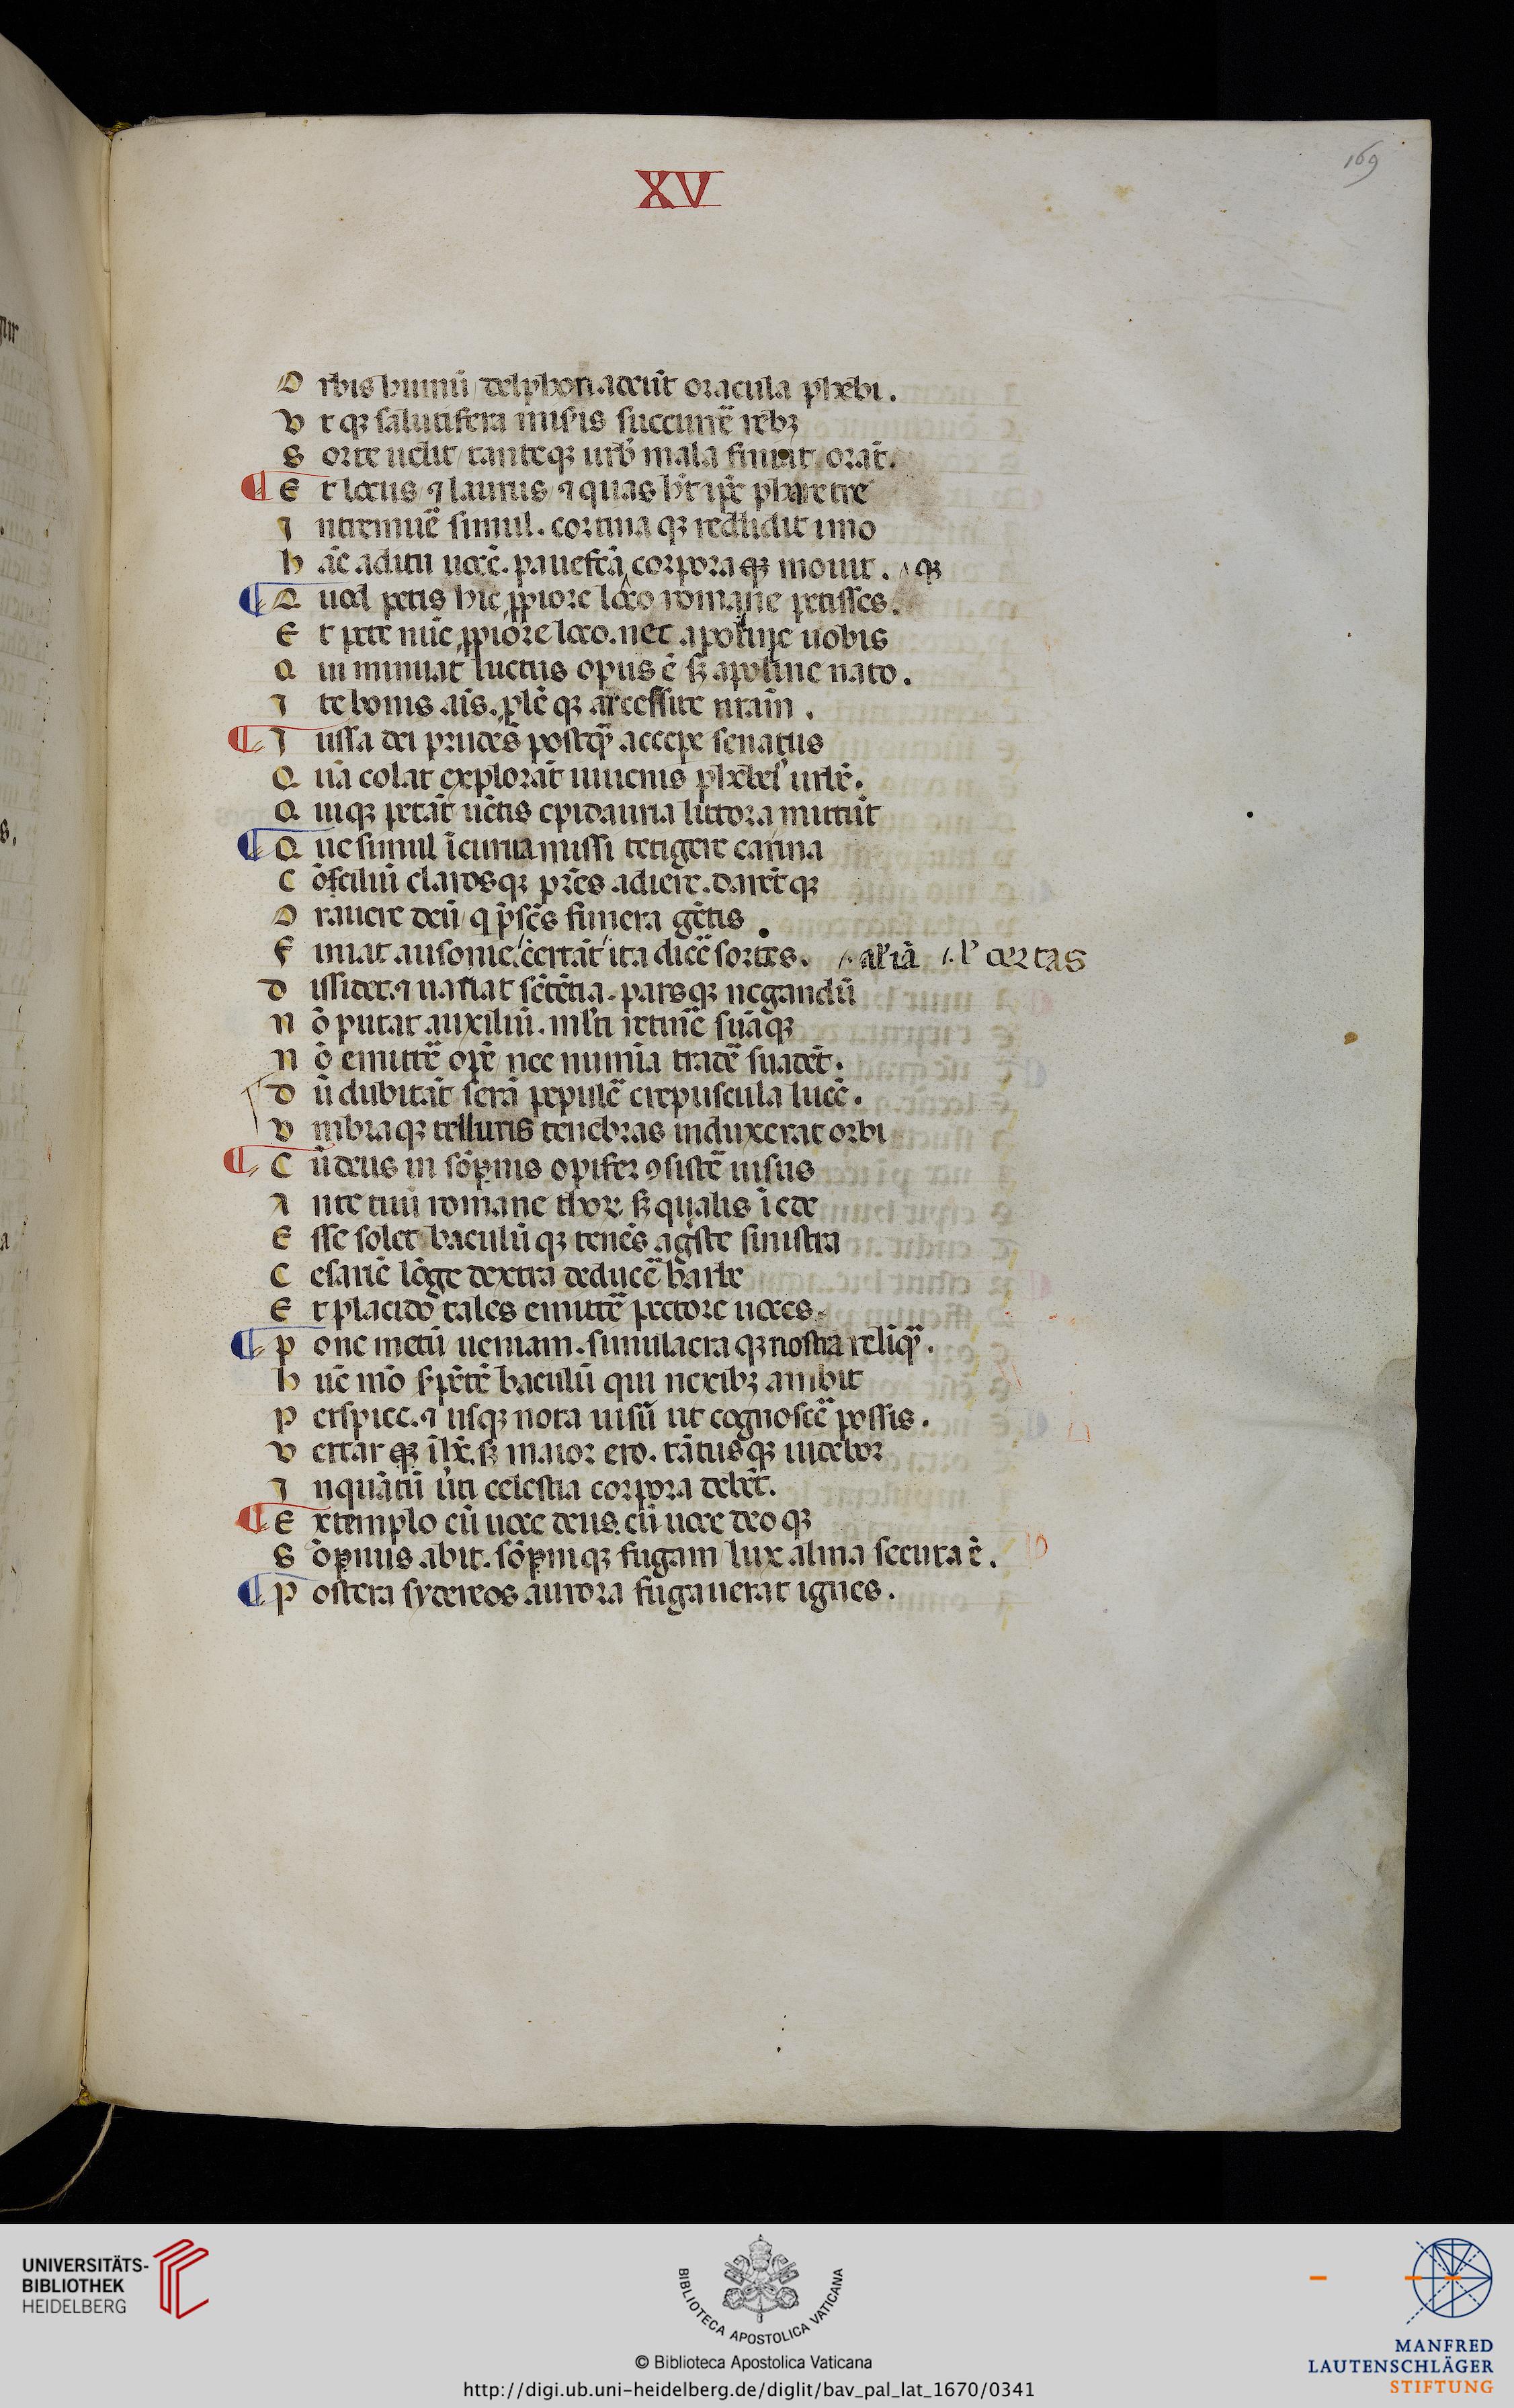 169
XV
O rbis humũ delphon adeũt oracula phebi.
V t qȝ salutifera misis succurrẽ rebȝ
S orte uelit tanteqȝ urb mala finiat orãt.
¶ E t locus ⁊ laurus ⁊ quas hȝ ipẽ pharetre
I ntremuẽ simul. cortina qȝ reddidit imo
h ãc aditu uocẽ. pauefctã corpora qȝ mouit. qȝ
¶ Q uod petis hic ꝓpiore loco romane petisses.
E t pete nũc ꝓpiore loco. nec apoline uobis
Q ui minuat luctus opus ẽ sȝ apoline nato.
I te bonis ais. plẽ qȝ arcessite nrãm.
¶ I ussa dei prudẽs postqȝ accepe senatus
Q uã colat explorãt iuuenis phebei urbẽ.
Q uiqȝ petãt uẽtis epidauria littora mittũt
¶ Q ue simul ĩcurua missi tetigere carina
C õsciliũ clarosqȝ pr̃es adiere. darẽt qȝ
O rauere deũ q p̃sẽs funera gẽtis
F iniat ausonie. certãt ita dicẽ sortes. aliã .l' certas
D issidet. ⁊ uariat sẽtẽtia. parsqȝ negandũ
N õ putat auxiliũ. mlti retinẽ suãqȝ
N õ emittẽ opẽ nec numĩa tradẽ suadẽt.
D ũ dubitãt serã pepulẽ crepuscula lucẽ.
V mbraqȝ telluris tenebras induxerat orbi
¶ C ũ deus in sõpnis opifer ꝯsistẽ uisus
A nte tuũ romane thorȝ. sȝ qualis ĩ ede
E sse solet baculũ qȝ tenẽs agste sinistra
C esariẽ lõge dextra deducẽ barbe
E t placido tales emittẽ pectore uoces.
¶ P one metũ ueniam. simulacra qȝ nostra relĩqȝ.
h uc mõ sꝑẽtẽ baculũ qui nexibȝ ambit
P erspice. ⁊ usqȝ nota uisũ ut cognoscẽ possis.
V ertar qȝ ĩ hẽ. sȝ maior ero. tãtusqȝ uidebor
I nquãtũ ũti celestia corpora debẽt.
¶ E xtemplo cũ uoce deus. cũ uoce deo qȝ
S õpnus abit. sõpni qȝ fugam lux alma secuta ẽ.
¶ P ostera sydereos aurora fugauerat ignes.
UNIVERSITÄTS-
BIBLIOTHEK
HEIDELBERG
BIBLIOTECA APOSTOLICA VATICANA
© Biblioteca Apostolica Vaticana
http://digi.ub.uni-heidelberg.de/diglit/bav_pal_lat_1670/0341
MANFRED
LAUTENSCHLÄGER
STIFTUNG